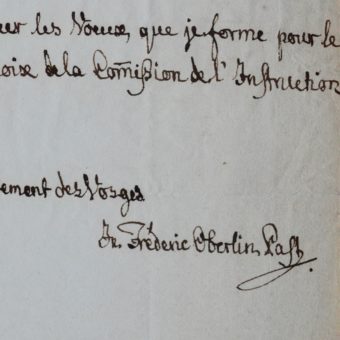 uer les Vœux, que je forme pour le
oise de la Com̄ission de l'Instruction
ement des Vosges
Jn. Fréderic Oberlin, Past.